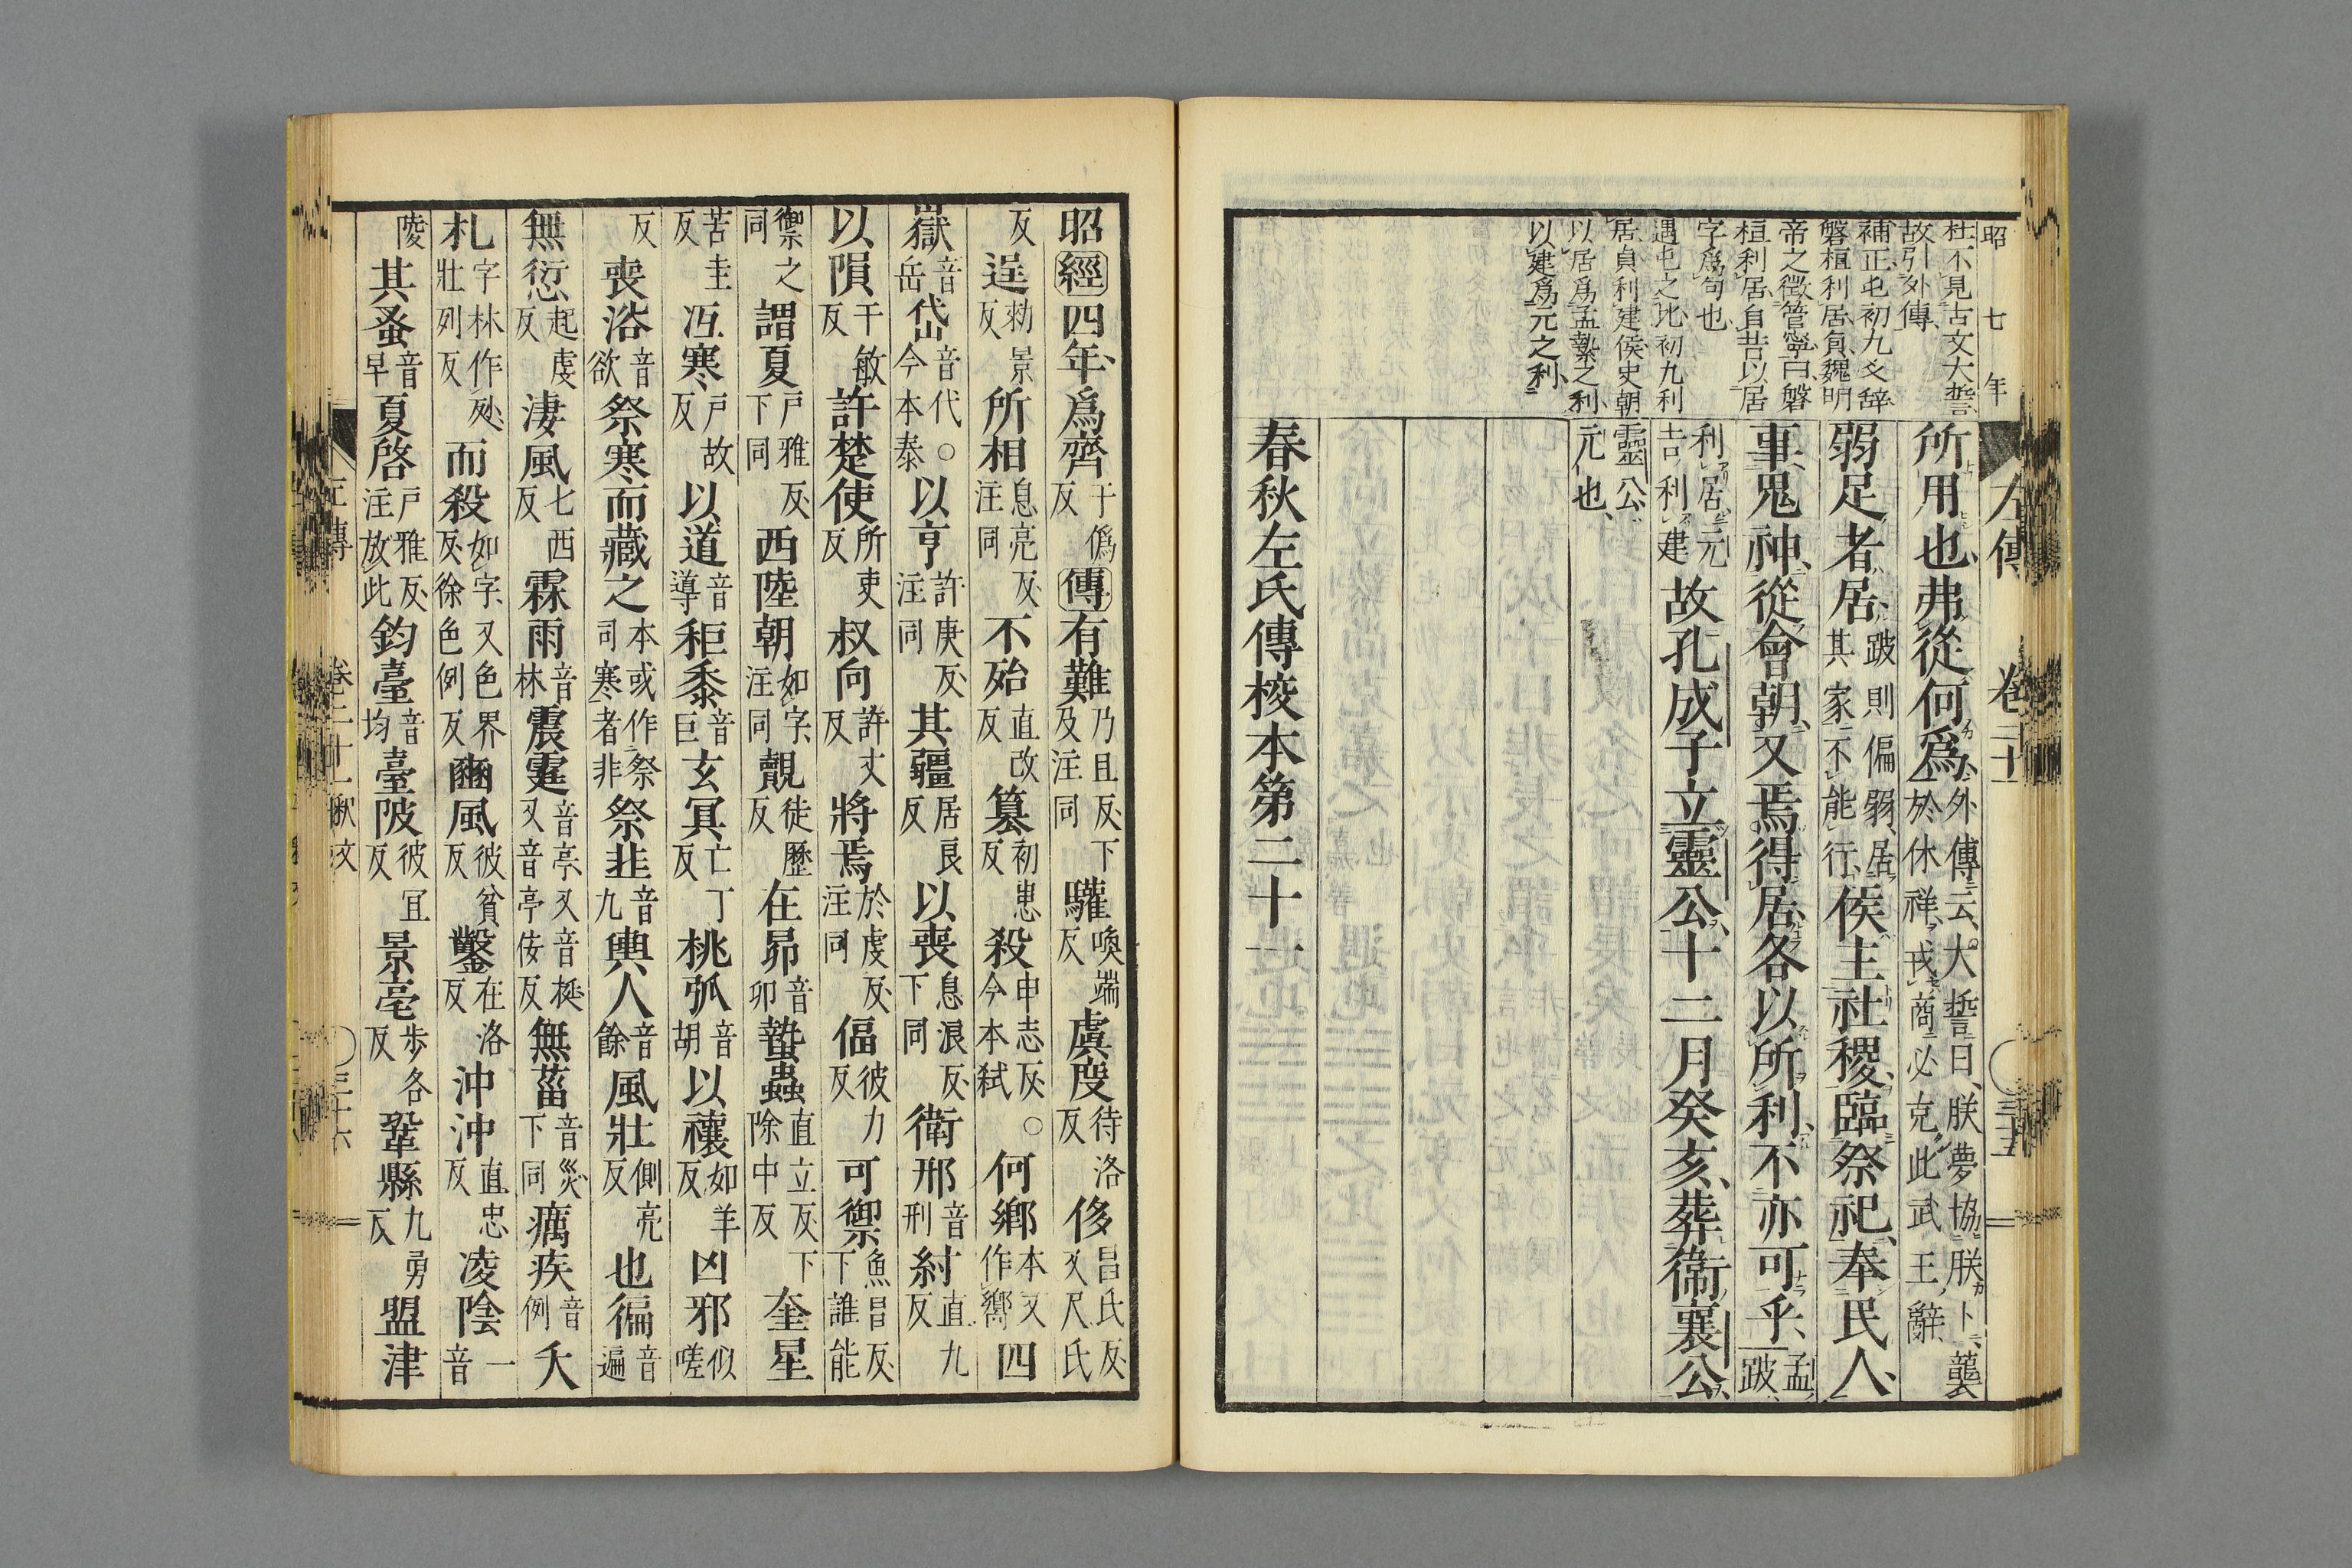 昭七年
左傳 卷二十 三十五
杜不見古文大誓
故引外傳
補正屯初九爻辭
磐桓利居貞魏明
帝之徵管寧曰磐
桓利居自昔以居
字爲句也
遇屯之比初九利
居貞利建侯史朝
以居爲孟縶之利
以建爲元之利
所用也弗從何爲外傳云大誓曰朕夢協朕卜襲於休祥戎商必克此武王辭
弱足者居跛則偏弱居其家不能行侯主社稷臨祭祀奉民人
事鬼神從會朝又焉得居各以所利不亦可乎孟跛
利居元吉利建故孔成子立靈公十二月癸亥葬衞襄公
靈公元也
春秋左氏傳校本第二十一
昭經四年爲齊于僞反傳有難乃旦反下及注同驩喚端反虞度待洛反侈昌氏反又尺氏反
逞勑景反所相息亮反注同不殆直改反篡初患反殺申志反今本弒○何鄉本又作嚮四
嶽音岳岱音代○今本泰以亨許庚反注同其疆居良反以喪息浪反下同衛邢音刑紂直九反
以隕于敏反許楚使所吏反叔向許丈反將焉於虔反注同偪彼力反可禦魚呂反下誰能
禦之同謂夏戶雅反下同西陸朝如字注同覿徒歷反在昴音卯蟄蟲直立反下除中反奎星
苦圭反沍寒戶故反以道音導秬黍音巨玄冥亡丁反桃弧音胡以禳如羊反凶邪似嗟
反喪浴音欲祭寒而藏之本或作祭司寒者非祭韭音九輿人音餘風壯側亮反也徧音遍
無愆起虔反淒風七西反霖雨音林震霆音亭又音挺又音亭佞反無菑音災下同癘疾音例夭
札字林作㱜壯列反而殺如字又色界反徐色例反豳風彼貧反鑿在洛反沖沖直忠反凌陰一音
陵其蚤音早夏啓戶雅反注放此鈞臺音均臺陂彼宜反景亳步各反鞏縣九勇反盟津